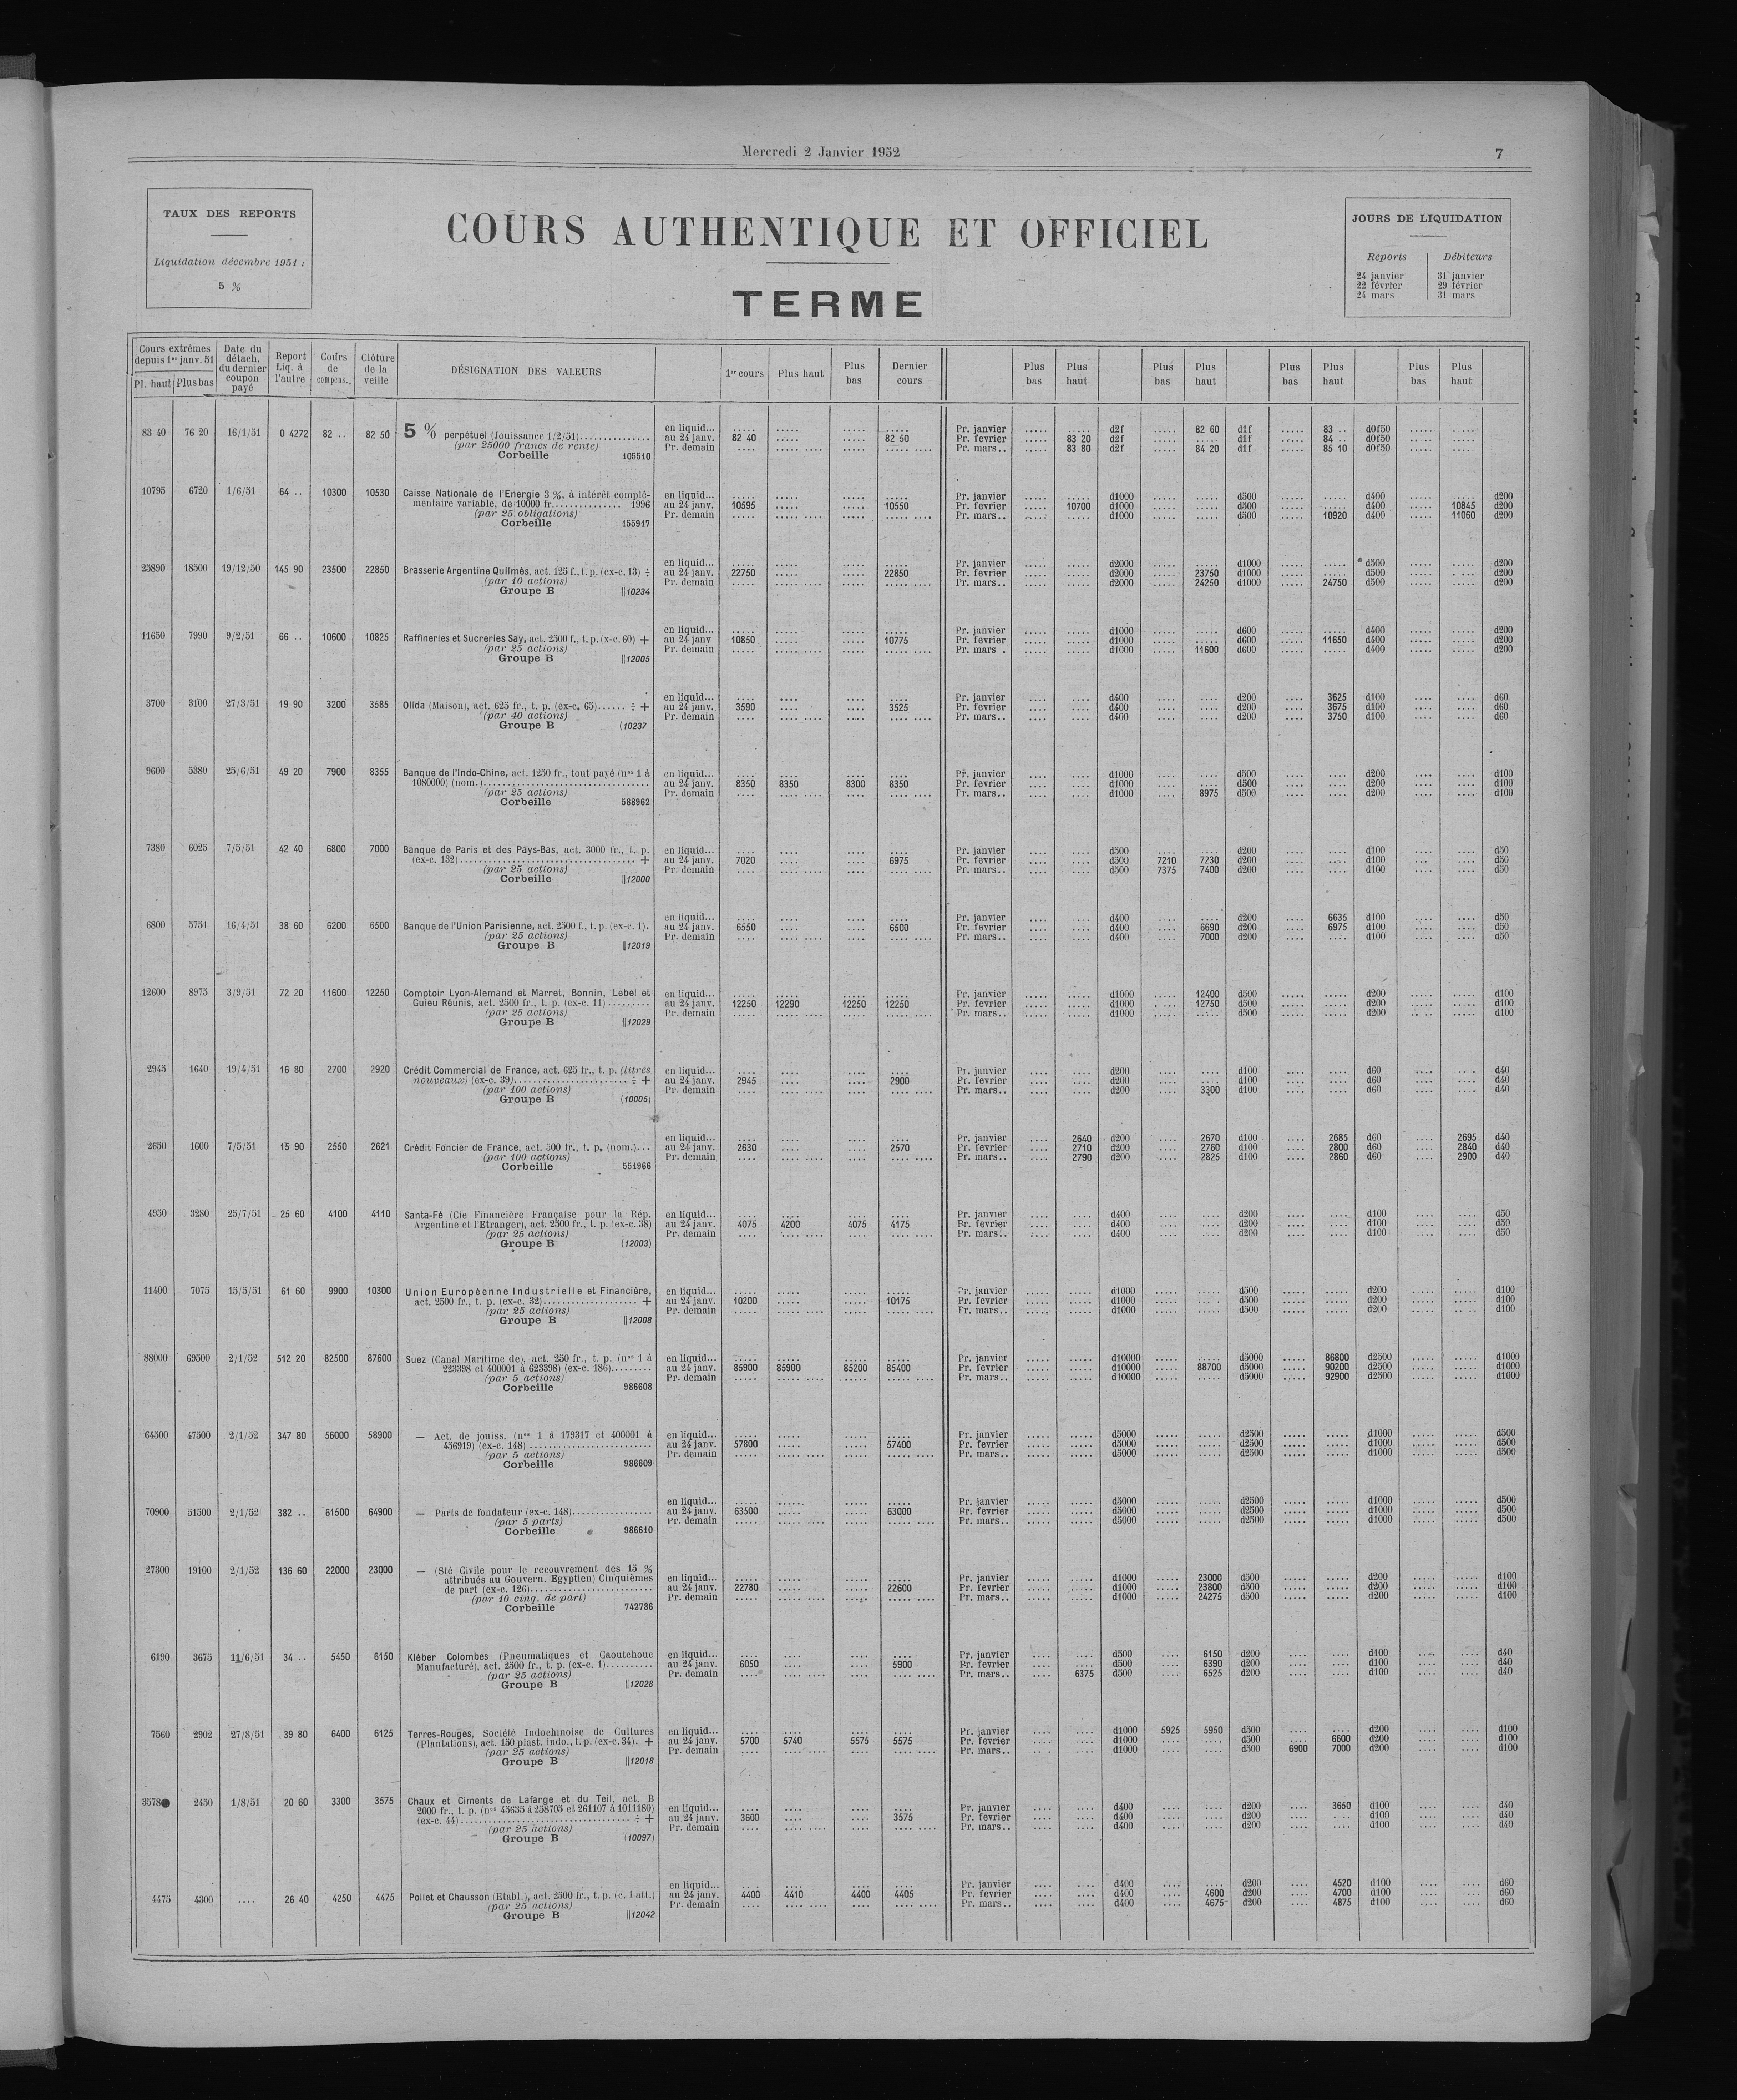 Mercredi 2 Janvier 1952
7
TAUX DES REPORTS
Liquidation décembre 1951 :
5 %
COURS AUTHENTIQUE ET OFFICIEL
TERME
JOURS DE LIQUIDATION
Reports Débiteurs
24 janvier 31 janvier
22 février 29 février
24 mars 31 mars
Cours extrêmes depuis 1er janv. 51 Pl. haut Plus bas Date du détach. du dernier coupon payé Report Liq. à l'autre Cours de compens. Clôture de la veille DÉSIGNATION DES VALEURS 1er cours Plus haut Plus bas Dernier cours Plus bas Plus haut Plus bas Plus haut Plus bas Plus haut Plus bas Plus haut
en liquid... ..... ..... ..... ..... Pr. janvier ..... ..... d2f ..... 82 60 d1f ..... 83 .. d0f50 ..... .....
83 40 76 20 16/1/51 0 4272 82 .. 82 50 5 % perpétuel (Jouissance 1/2/51).............. au 24 janv. 82 40 ..... ..... 82 50 Pr. fevrier ..... 83 20 d2f ..... ..... d1f ..... 84 .. d0f50 ..... .....
(par 25000 francs de rente) Pr. demain .... ..... .... ..... ..... .... Pr. mars.. ..... 83 80 d2f ..... 84 20 d1f ..... 85 10 d0f50 ..... ....
Corbeille 105510
10795 6720 1/6/51 64 .. 10300 10530 Caisse Nationale de l'Energie 3 %, à intérêt complé- en liquid... ..... ..... ..... ..... Pr. janvier ..... ..... d1000 ..... ..... d500 ..... ..... d400 ..... ..... d200
mentaire variable, de 10000 fr............... 1996 au 24 janv. 10595 ..... ..... 10550 Pr. fevrier ..... 10700 d1000 ..... ..... d500 ..... ..... d400 ..... 10845 d200
(par 25 obligations) Pr. demain ..... ..... .... ..... ..... .... Pr. mars.. ..... ..... d1000 ..... ..... d500 ..... 10920 d400 ..... 11060 d200
Corbeille 155917
en liquid... ..... ..... ..... ..... Pr. janvier ..... ..... d2000 ..... ..... d1000 ..... ..... d500 ..... ..... d200
25890 18500 19/12/50 145 90 23500 22850 Brasserie Argentine Quilmès, act. 125 f., t. p. (ex-c. 13) ÷ au 24 janv. 22750 ..... ..... 22850 Pr. fevrier ..... ..... d2000 ..... 23750 d1000 ..... ..... d500 ..... ..... d200
(par 10 actions) Pr. demain ..... ..... .... ..... ..... .... Pr. mars.. ..... ..... d2000 ..... 24250 d1000 ..... 24750 d500 ..... ..... d200
Groupe B ||10234
en liquid... ..... ..... ..... ..... Pr. janvier ..... ..... d1000 ..... ..... d600 ..... ..... d400 ..... ..... d200
11650 7990 9/2/51 66 .. 10600 10825 Raffineries et Sucreries Say, act. 2500 f., t. p. (x-c. 60) + au 24 janv 10850 ..... ..... 10775 Pr. fevrier ..... ..... d1000 ..... ..... d600 ..... 11650 d400 ..... ..... d200
(par 25 actions) Pr. demain ..... ..... .... ..... ..... .... Pr. mars . ..... ..... d1000 ..... 11600 d600 ..... ..... d400 ..... ..... d200
Groupe B ||12005
en liquid... .... .... .... .... Pr. janvier .... .... d400 .... .... d200 .... 3625 d100 .... .... d60
3700 3100 27/3/51 19 90 3200 3585 Olida (Maison), act. 625 fr., t. p. (ex-c. 65)...... ÷ + au 24 janv. 3590 .... .... 3525 Pr. fevrier .... .... d400 .... .... d200 .... 3675 d100 .... .... d60
(par 40 actions) Pr. demain .... .... .... .... .... .... Pr. mars.. .... .... d400 .... .... d200 .... 3750 d100 .... .... d60
Groupe B (10237
9600 5380 25/6/51 49 20 7900 8355 Banque de l'Indo-Chine, act. 1250 fr., tout payé (nos 1 à en liquid... .... .... .... .... Pr. janvier .... .... d1000 .... .... d500 .... .... d200 .... .... d100
1080000) (nom.)................................. au 24 janv. 8350 8350 8300 8350 Pr. fevrier .... .... d1000 .... .... d500 .... .... d200 .... .... d100
(par 25 actions) Pr. demain .... .... .... .... .... .... Pr. mars.. .... .... d1000 .... 8975 d500 .... .... d200 .... .... d100
Corbeille 588962
7380 6025 7/5/51 42 40 6800 7000 Banque de Paris et des Pays-Bas, act. 3000 fr., t. p. en liquid... .... .... .... .... Pr. janvier .... .... d500 .... .... d200 .... .... d100 .... .... d50
(ex-c. 132)................................... + au 24 janv. 7020 .... .... 6975 Pr. fevrier .... .... d500 7210 7230 d200 .... .... d100 .... .... d50
(par 25 actions) Pr. demain .... .... .... .... .... .... Pr. mars.. .... .... d500 7375 7400 d200 .... .... d100 .... .... d50
Corbeille ||12000
en liquid... .... .... .... .... Pr. janvier .... .... d400 .... .... d200 .... 6635 d100 .... .... d50
6800 5751 16/4/51 38 60 6200 6500 Banque de l'Union Parisienne, act. 2500 f., t. p. (ex-c. 1). au 24 janv. 6550 .... .... 6500 Pr. fevrier .... .... d400 .... 6690 d200 .... 6975 d100 .... .... d50
(par 25 actions) Pr. demain .... .... .... .... .... .... Pr. mars.. .... .... d400 .... 7000 d200 .... .... d100 .... .... d50
Groupe B ||12019
12600 8975 3/9/51 72 20 11600 12250 Comptoir Lyon-Alemand et Marret, Bonnin, Lebel et en liquid... ..... ..... ..... ..... Pr. janvier ..... ..... d1000 ..... 12400 d500 ..... ..... d200 ..... ..... d100
Guieu Réunis, act. 2500 fr., t. p. (ex-c. 11)......... au 24 janv. 12250 12290 12250 12250 Pr. fevrier ..... ..... d1000 ..... 12750 d500 ..... ..... d200 ..... ..... d100
(par 25 actions) Pr. demain ..... ..... .... ..... ..... .... Pr. mars.. ..... ..... d1000 ..... ..... d500 ..... ..... d200 ..... ..... d100
Groupe B ||12029
2945 1640 19/4/51 16 80 2700 2920 Crédit Commercial de France, act. 625 fr., t. p. (titres en liquid... .... .... .... .... Pr. janvier .... .... d200 .... .... d100 .... .... d60 .... .... d40
nouveaux) (ex-c. 39)....................... ÷ + au 24 janv. 2945 .... .... 2900 Pr. fevrier .... .... d200 .... .... d100 .... .... d60 .... .... d40
(par 100 actions) Pr. demain .... .... .... .... .... .... Pr. mars.. .... .... d200 .... 3300 d100 .... .... d60 .... .... d40
Groupe B (10005)
en liquid... .... .... .... .... Pr. janvier .... 2640 d200 .... 2670 d100 .... 2685 d60 .... 2695 d40
2650 1600 7/5/51 15 90 2550 2621 Crédit Foncier de France, act. 500 fr., t. p. (nom.)... au 24 janv. 2630 .... .... 2570 Pr. fevrier .... 2710 d200 .... 2760 d100 .... 2800 d60 .... 2840 d40
(par 100 actions) Pr. demain .... .... .... .... .... .... Pr. mars.. .... 2790 d200 .... 2825 d100 .... 2860 d60 .... 2900 d40
Corbeille 551966
4950 3280 25/7/51 25 60 4100 4110 Santa-Fé (Cie Financière Française pour la Rép. en liquid... .... .... .... .... Pr. janvier .... .... d400 .... .... d200 .... .... d100 .... .... d50
Argentine et l'Etranger), act. 2500 fr., t. p. (ex-c. 38) au 24 janv. 4075 4200 4075 4175 Pr. fevrier .... .... d400 .... .... d200 .... .... d100 .... .... d50
(par 25 actions) Pr. demain .... .... .... .... .... .... Pr. mars.. .... .... d400 .... .... d200 .... .... d100 .... .... d50
Groupe B (12003)
11400 7075 15/5/51 61 60 9900 10300 Union Européenne Industrielle et Financière, en liquid... ..... ..... ..... ..... Pr. janvier ..... ..... d1000 ..... ..... d500 ..... ..... d200 ..... ..... d100
act. 2500 fr., t. p. (ex-c. 32).................. + au 24 janv. 10200 ..... ..... 10175 Pr. fevrier ..... ..... d1000 ..... ..... d500 ..... ..... d200 ..... ..... d100
(par 25 actions) Pr. demain ..... ..... .... ..... ..... .... Pr. mars.. ..... ..... d1000 ..... ..... d500 ..... ..... d200 ..... ..... d100
Groupe B ||12008
88000 69500 2/1/52 512 20 82500 87600 Suez (Canal Maritime de), act. 250 fr., t. p. (nos 1 à en liquid... ..... ..... ..... ..... Pr. janvier ..... ..... d10000 ..... ..... d5000 ..... 86800 d2500 ..... ..... d1000
223398 et 400001 à 623398) (ex-c. 186)........ au 24 janv. 85900 85900 85200 85400 Pr. fevrier ..... ..... d10000 ..... 88700 d5000 ..... 90200 d2500 ..... ..... d1000
(par 5 actions) Pr. demain ..... ..... .... ..... ..... .... Pr. mars.. ..... ..... d10000 ..... ..... d5000 ..... 92900 d2500 ..... ..... d1000
Corbeille 986608
64500 47500 2/1/52 347 80 56000 58900 — Act. de jouiss. (nos 1 à 179317 et 400001 à en liquid... ..... ..... ..... ..... Pr. janvier ..... ..... d5000 ..... ..... d2500 ..... ..... d1000 ..... ..... d500
456919) (ex-c. 148)......................... au 24 janv. 57800 ..... ..... 57400 Pr. fevrier ..... ..... d5000 ..... ..... d2500 ..... ..... d1000 ..... ..... d500
(par 5 actions) Pr. demain ..... ..... .... ..... ..... .... Pr. mars.. ..... ..... d5000 ..... ..... d2500 ..... ..... d1000 ..... ..... d500
Corbeille 986609
en liquid... ..... ..... ..... ..... Pr. janvier ..... ..... d5000 ..... ..... d2500 ..... ..... d1000 ..... ..... d500
70900 51500 2/1/52 382 .. 61500 64900 — Parts de fondateur (ex-c. 148)................ au 24 janv. 63500 ..... ..... 63000 Pr. fevrier ..... ..... d5000 ..... ..... d2500 ..... ..... d1000 ..... ..... d500
(par 5 parts) Pr. demain ..... ..... .... ..... ..... .... Pr. mars.. ..... ..... d5000 ..... ..... d2500 ..... ..... d1000 ..... ..... d500
Corbeille 986610
27300 19100 2/1/52 136 60 22000 23000 — (Sté Civile pour le recouvrement des 15 %
attribués au Gouvern. Egyptien) Cinquièmes en liquid... ..... ..... ..... ..... Pr. janvier ..... ..... d1000 ..... 23000 d500 ..... ..... d200 ..... ..... d100
de part (ex-c. 126)......................... au 24 janv. 22780 ..... ..... 22600 Pr. fevrier ..... ..... d1000 ..... 23800 d500 ..... ..... d200 ..... ..... d100
(par 10 cinq. de part) Pr. demain ..... ..... .... ..... ..... .... Pr. mars.. ..... ..... d1000 ..... 24275 d500 ..... ..... d200 ..... ..... d100
Corbeille 742736
6190 3675 11/6/51 34 .. 5450 6150 Kléber Colombes (Pneumatiques et Caoutchouc en liquid... .... .... .... .... Pr. janvier .... .... d500 .... 6150 d200 .... .... d100 .... .... d40
Manufacturé), act. 2500 fr., t. p. (ex-c. 1)......... au 24 janv. 6050 .... .... 5900 Pr. fevrier .... .... d500 .... 6390 d200 .... .... d100 .... .... d40
(par 25 actions) Pr. demain .... .... .... .... .... .... Pr. mars.. .... 6375 d500 .... 6525 d200 .... .... d100 .... .... d40
Groupe B ||12028
7560 2902 27/8/51 39 80 6400 6125 Terres-Rouges, Société Indochinoise de Cultures en liquid... .... .... .... .... Pr. janvier .... .... d1000 5925 5950 d500 .... .... d200 .... .... d100
(Plantations), act. 150 piast. indo., t. p. (ex-c. 34). + au 24 janv. 5700 5740 5575 5575 Pr. fevrier .... .... d1000 .... .... d500 .... 6600 d200 .... .... d100
(par 25 actions) Pr. demain .... .... .... .... .... .... Pr. mars.. .... .... d1000 .... .... d500 6900 7000 d200 .... .... d100
Groupe B ||12018
3578● 2450 1/8/51 20 60 3300 3575 Chaux et Ciments de Lafarge et du Teil, act. B
2000 fr., t. p. (nos 45635 à 258705 et 261107 à 1011180) en liquid... .... .... .... .... Pr. janvier .... .... d400 .... .... d200 .... 3650 d100 .... .... d40
(ex-c. 44).................................. ÷ + au 24 janv. 3600 .... .... 3575 Pr. fevrier .... .... d400 .... .... d200 .... .... d100 .... .... d40
(par 25 actions) Pr. demain .... .... .... .... .... .... Pr. mars.. .... .... d400 .... .... d200 .... .... d100 .... .... d40
Groupe B (10097)
en liquid... .... .... .... .... Pr. janvier .... .... d400 .... .... d200 .... 4520 d100 .... .... d60
4475 4300 .... 26 40 4250 4475 Poliet et Chausson (Etabl.), act. 2500 fr., t. p. (c. 1 att.) au 24 janv. 4400 4410 4400 4405 Pr. fevrier .... .... d400 .... 4600 d200 .... 4700 d100 .... .... d60
(par 25 actions) Pr. demain .... .... .... .... .... .... Pr. mars.. .... .... d400 .... 4675 d200 .... 4875 d100 .... .... d60
Groupe B ||12042